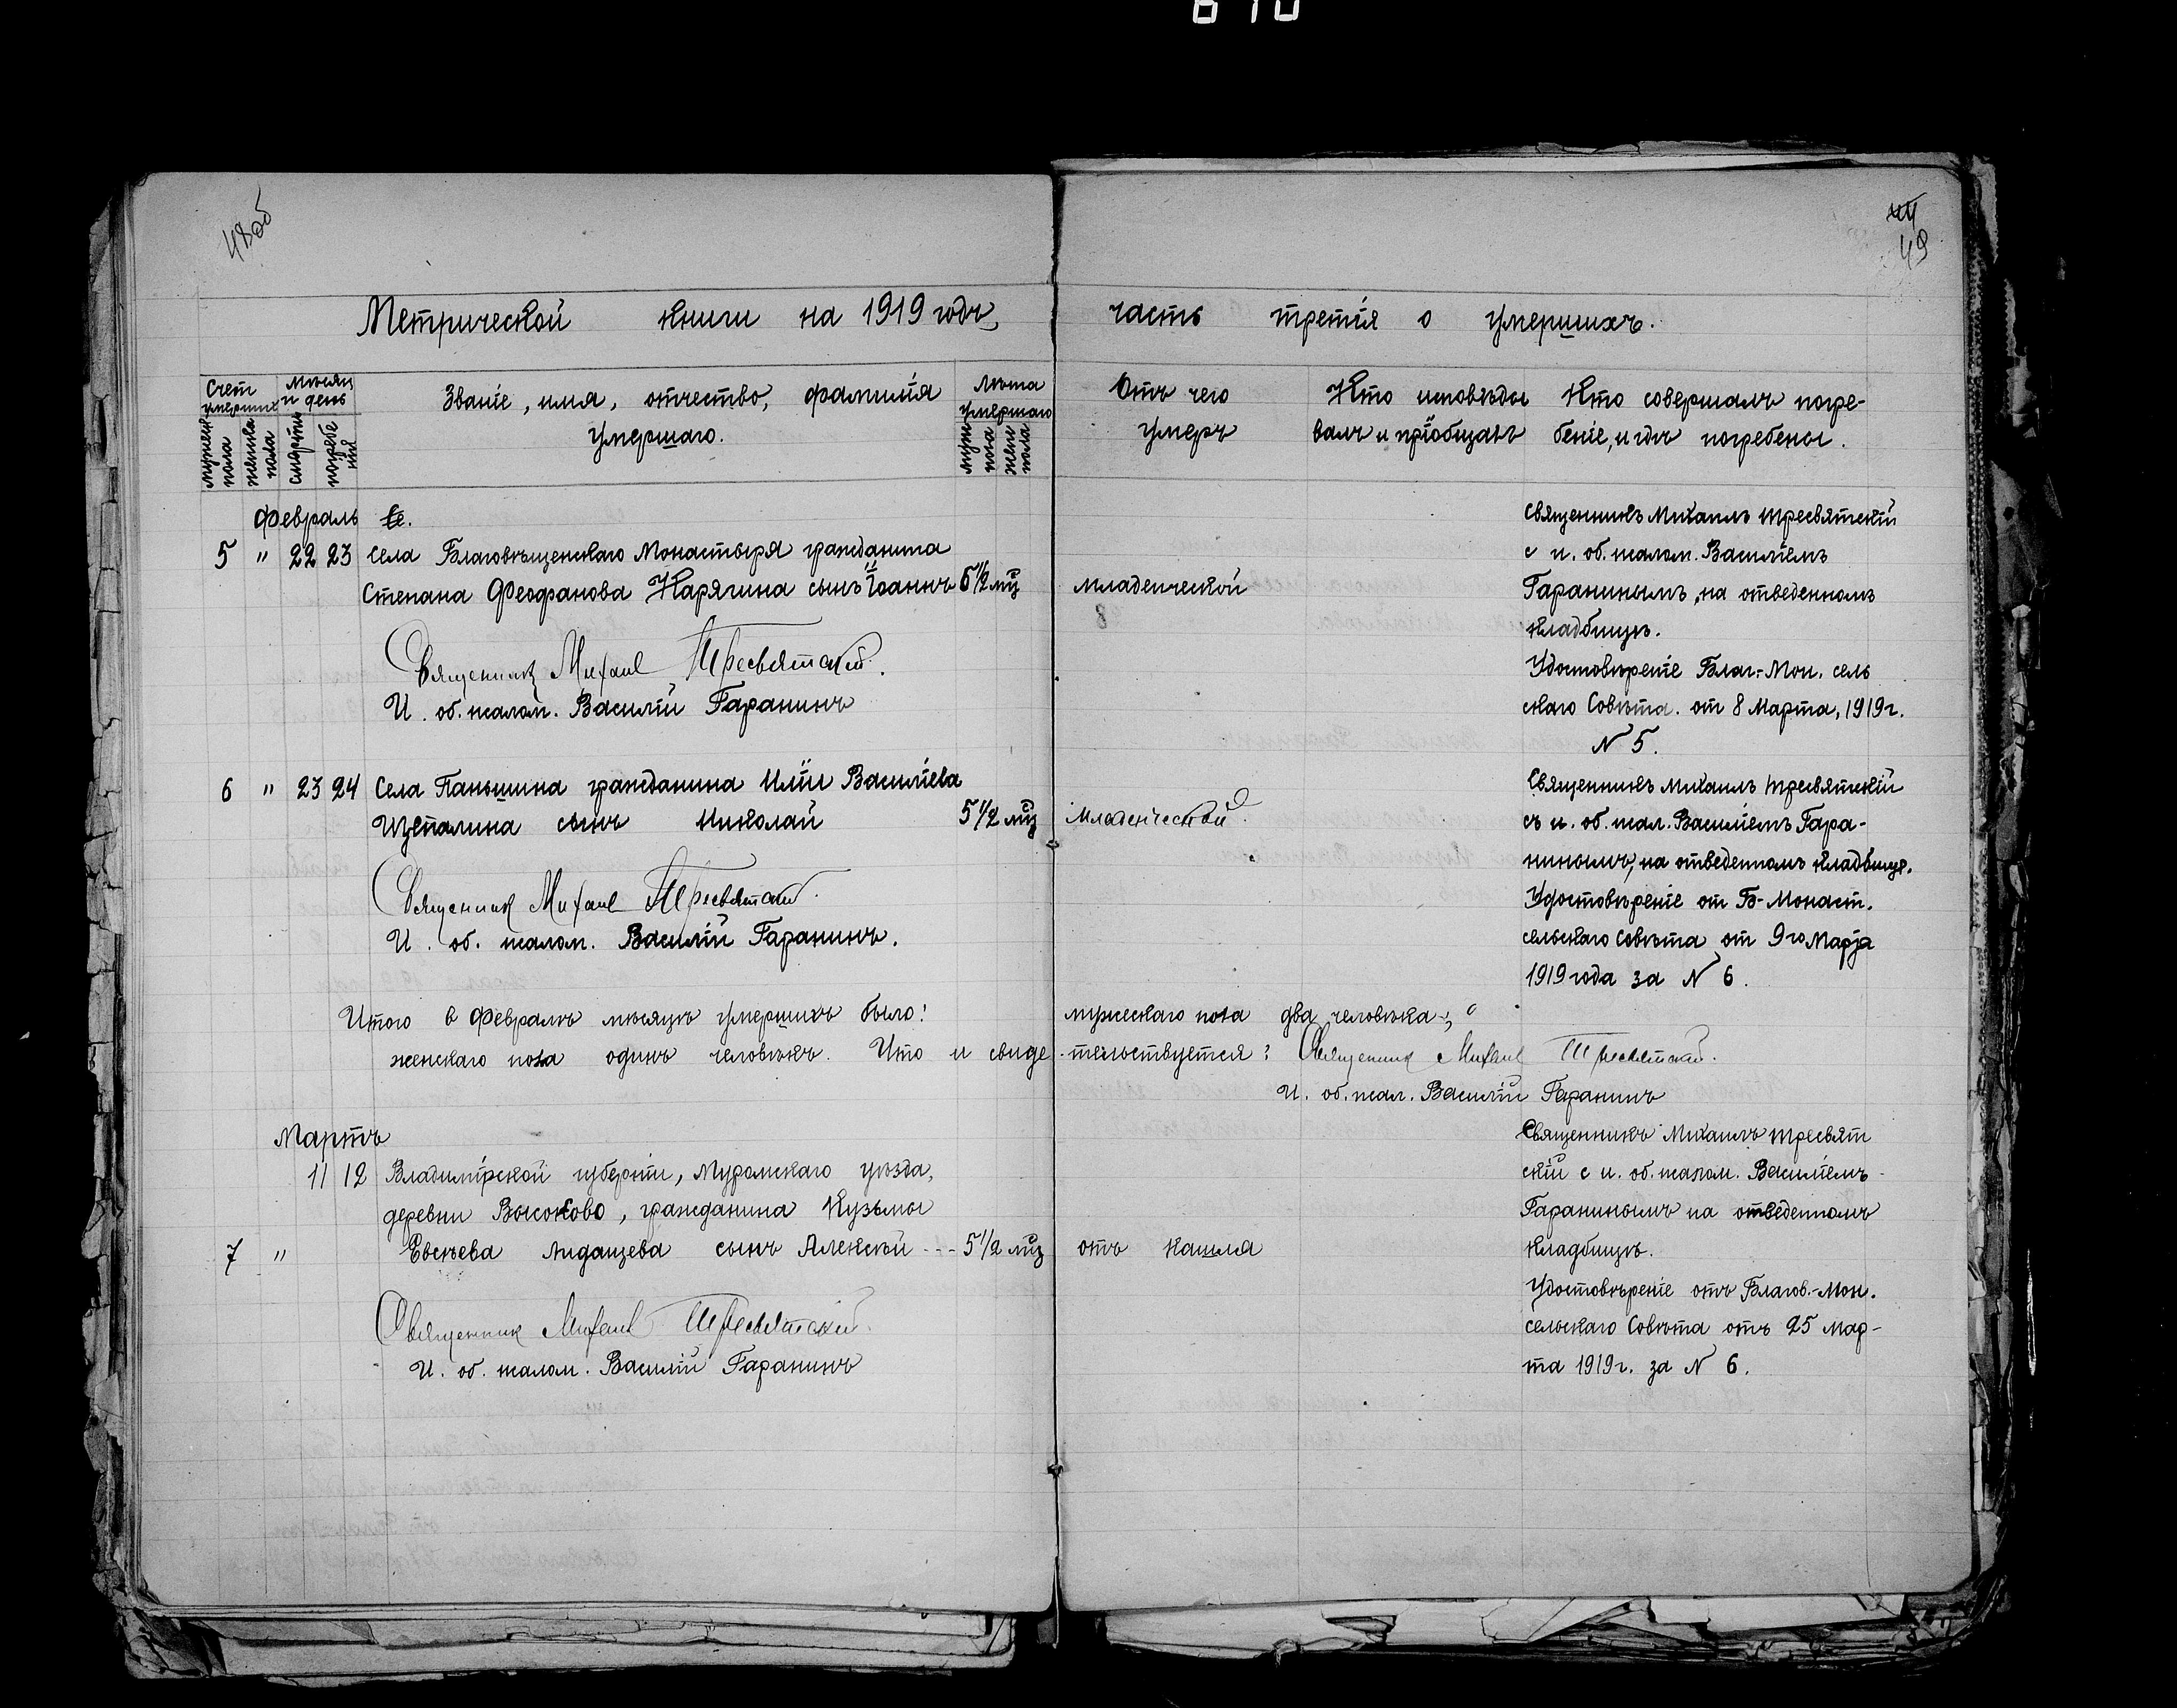 48об
44
49
Метрической книги на 1919 годъ, часть третія о умершихъ.
Счет умерших
мужеск пола
женска пола
Мѣсяц и день
смерти
погребе нія
Званіе, имя, отчество, фамилія умершаго.
Лѣта умершаго
муж пола
жен пола
Отъ чего умеръ
Кто исповѣды валъ и пріобщалъ
Кто совершалъ погре-
беніе, и гдѣ погребены.
Февраль
5 " 22 23 села Благовѣщенскаго Монастыря гражданина
Степана Феофанова Карягина сынъ Іоаннъ 6 1/2 мц
младенческой
Священникъ Михаилъ Тресвятскій
с и. об. псалом. Василіемъ
Гаранинымъ, на отведенномъ
кладбищѣ.
Удостовѣреніе Благ.-Мон. сель
скаго Совѣта. от 8 Марта, 1919 г.
N 5.
Священникъ Михаил Тресвятскій.
И. об. псалом. Василій Гаранинъ
6 " 23 24 Села Паньшина гражданина Иліи Василіева
Щепалина сынъ Николай 5 1/2 мц
Младенческой
Священникъ Михаилъ Тресвятскій
съ и. об. псал. Василіемъ Гара-
нинымъ, на отведенномъ кладбищѣ.
Удостовѣреніе от Б-Монаст.
сельскаго Совѣта от 9го Марта
1919 года за N 6.
Священник Михаил Тресвятский.
И. об. псалом. Василій Гаранинъ.
Итого в Февралѣ мѣсяцѣ умершихъ было: мужескаго пола два человѣка,
женскаго пола одинъ человѣкъ. Что и свидѣ-тельствуется: Священник Михаил Тресвятский.
И. об. псал. Василій Гаранинъ
Мартъ
11 12 Владимірской губерніи, Муромскаго уѣзда,
деревни Высоково, гражданина Кузьмы
7 " Евсѣева Лидащева сынъ Алексѣй --- 5 1/2 мц
отъ кашля
Священникъ Михаилъ Тресвят
скій с и. об. псалом. Василіемъ
Гаранинымъ на отведенномъ
кладбищѣ.
Удостовѣреніе отъ Благов.-Мон.
сельскаго Совѣта отъ 25 Мар-
та 1919 г. за N 6.
Священник Михаил Тресвятский
И. об. псалом. Василій Гаранинъ